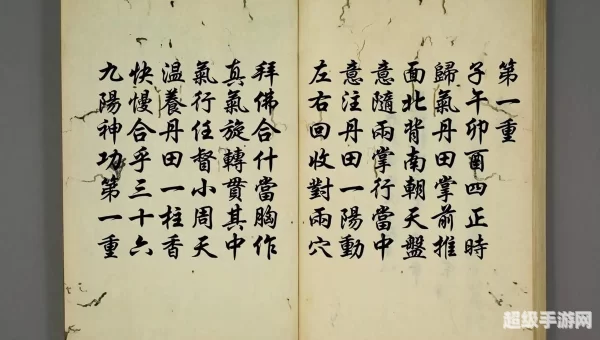 第一重
子午卯酉四正時
歸氣丹田掌前推
面北背南朝天盤
意隨兩掌行當中
意注丹田一陽動
左右回收對兩穴
拜佛合什當胸作
真氣旋轉貫其中
氣行任督小周天
溫養丹田一柱香
快慢合乎三十六
九陽神功第一重
超级手游网